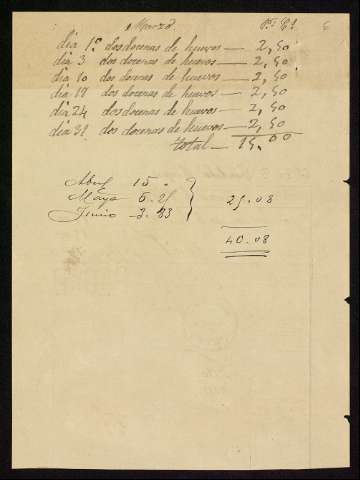 Marzo. Pts Cs
día 1º dos docenas de huevos — 2,50
día 3 dos docenas de huevos — 2,50
día 10 dos docenas de huevos — 2,50
día 17 dos docenas de huevos — 2,50
día 24 dos docenas de huevos — 2,50
día 31 dos docenas de huevos — 2,50
total — 15.00
Abril 15 .
Mayo 6.25
25.08
Junio 3.83
40.08